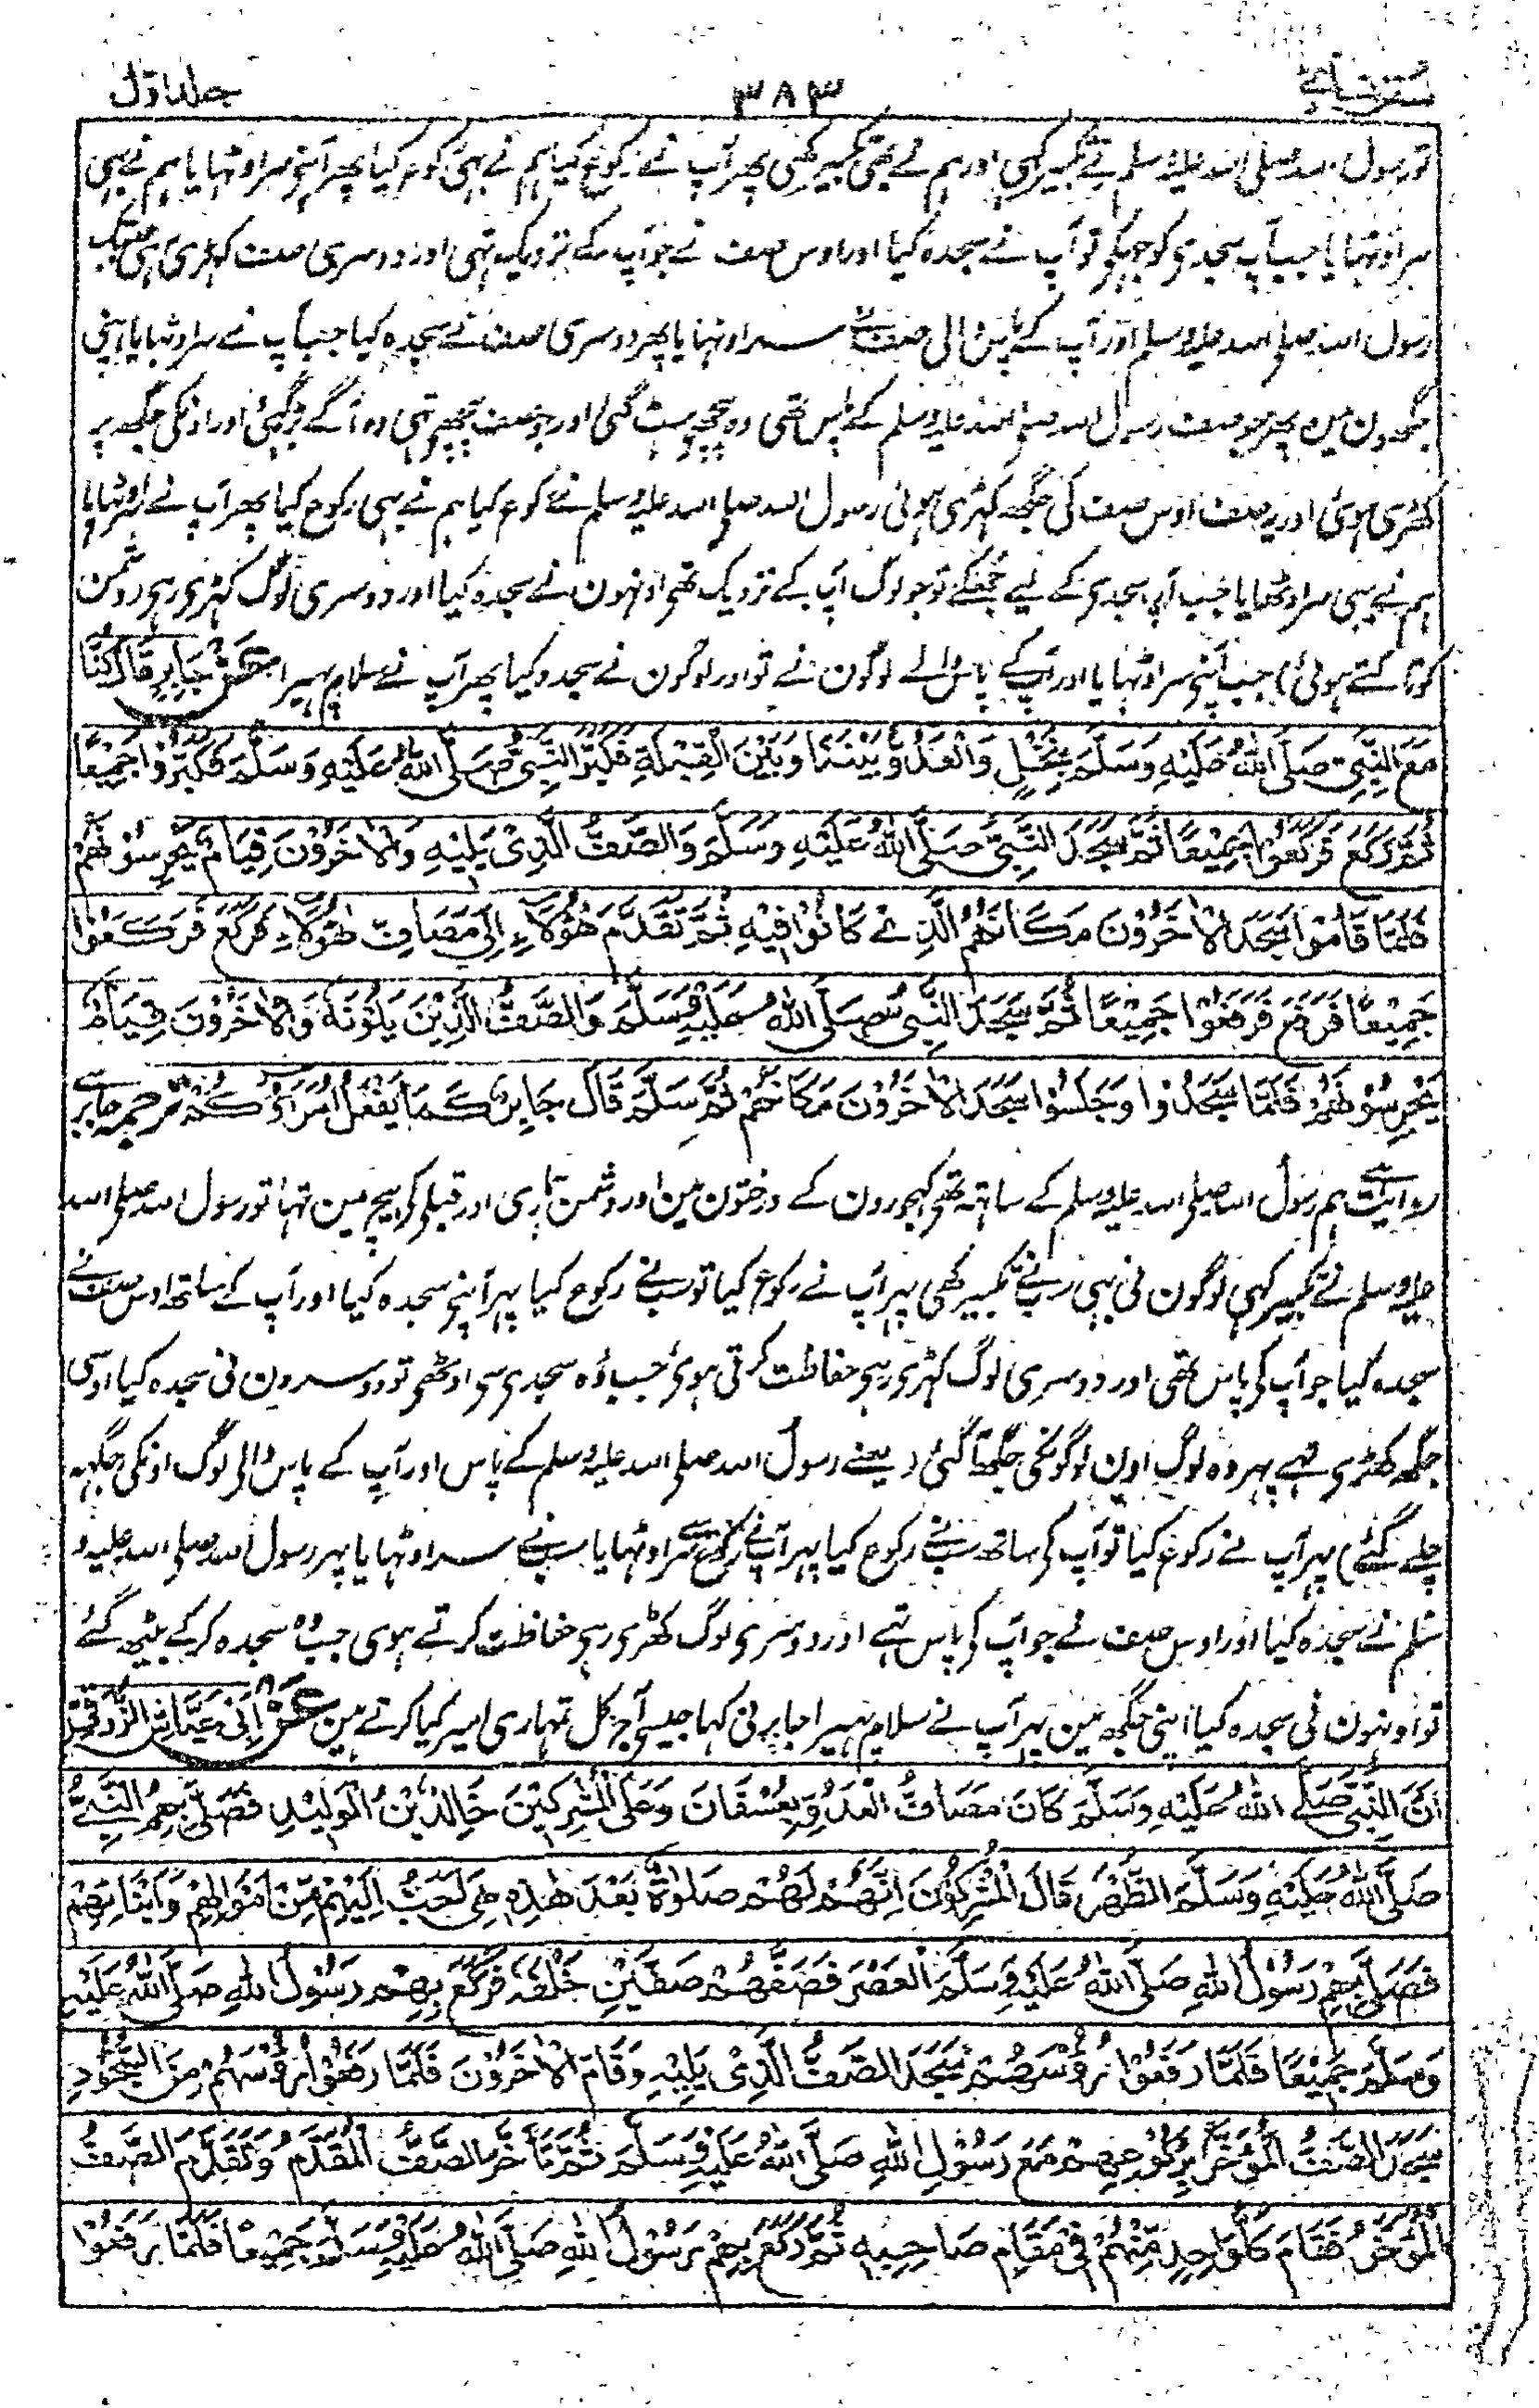 سنن نسائی ۳۸۳ جلد اول
تو رسول اللہ صلی اللہ علیہ وسلم نے تکبیر کہی اور ہم نے بھی تکبیر کہی پھر آپ نے رکوع کیا ہم نے بہی رکوع کیا پھر آپنے سر اوٹہایا ہم نے بہی
سر اوٹہایا جب آپ سجدی کو جہکے تو آپ نے سجدہ کیا اور اوس صف نے جو آپ کے نزدیک تہی اور دوسری صف کہڑی رہی جبتک
رسول اللہ صلی اللہ علیہ وسلم اور آپ کے پاس والی صف نے سر اوٹہایا پھر دوسری صف نے سجدہ کیا جب آپ نے سر اوٹہایا اپنی
جگھون مین پھر جو صف رسول اللہ صلی اللہ علیہ وسلم کے پاس تھی وہ پیچہے ہٹ گئی اور جو صف پیچھے تہی وہ آگے بڑہ گئی اور اونکی جگھہ پر
کھڑی ہوئی اور یہ صف اوس صف کی جگھہ کہڑی ہوئی رسول اللہ صلی اللہ علیہ وسلم نے رکوع کیا ہم نے بہی رکوع کیا پھر آپ نے سر اوٹہایا
ہم نے بہی سر اوٹھایا جب آپ سجدی کے لیے جُھکے تو جو لوگ آپ کے نزدیک تھی اونہون نے سجدہ کیا اور دوسری لوگ کہڑی رہی (دشمن
کو تاکتے ہوئی) جب آپنے سر اوٹہایا اور آپ کے پاس والے لوگون نے تو اور لوگون نے سجدہ کیا پھر آپ نے سلام پہیرا عَنْ جَابِرٍ قَالَ كُنَّا
مَعَ النَّبِيِّ صَلَّى اللهُ عَلَيْهِ وَسَلَّمَ بِنَخْلٍ وَالْعَدُوُّ بَيْنَنَا وَبَيْنَ الْقِبْلَةِ فَكَبَّرَ النَّبِيُّ صَلَّى اللهُ عَلَيْهِ وَسَلَّمَ فَكَبَّرُوْا جَمِيْعًا
ثُمَّ رَكَعَ فَرَكَعُوْا جَمِيْعًا ثُمَّ سَجَدَ النَّبِيُّ صَلَّى اللهُ عَلَيْهِ وَسَلَّمَ وَالصَّفُّ الَّذِيْ يَلِيْهِ وَالْاٰخَرُوْنَ قِيَامٌ يَحْرِسُوْنَهُمْ
فَلَمَّا قَامُوْا سَجَدَ الْاٰخَرُوْنَ مَكَانَهُمُ الَّذِيْ كَانُوْا فِيْهِ ثُمَّ تَقَدَّمَ هٰؤُلَاءِ اِلٰى مَصَافِّ هٰؤُلَاءِ فَرَكَعَ فَرَكَعُوْا
جَمِيْعًا فَرَفَعَ فَرَفَعُوْا جَمِيْعًا ثُمَّ سَجَدَ النَّبِيُّ صَلَّى اللهُ عَلَيْهِ وَسَلَّمَ وَالصَّفُّ الَّذِيْنَ يَلُوْنَهُ وَالْاٰخَرُوْنَ قِيَامٌ
يَحْرِسُوْنَهُمْ فَلَمَّا سَجَدُوْا وَجَلَسُوْا سَجَدَ الْاٰخَرُوْنَ مَكَانَهُمْ ثُمَّ سَلَّمَ قَالَ جَابِرٌ كَمَا يَفْعَلُ اُمَرَاؤُكُمْ ترجمہ جابر سے
روایت ہے ہم رسول اللہ صلی اللہ علیہ وسلم کے ساتہ تھے کہجورون کے درختون مین اور دشمن ہماری اور قبلہ کی بیچ مین تہا تو رسول اللہ صلی اللہ
علیہ وسلم نے تکبیر کہی لوگون نی بہی سبنے تکبیر کہی پہر آپ نے رکوع کیا تو سبنے رکوع کیا پہر آپنے سجدہ کیا اور آپ کے ساتھ اوس صف نے
سجدہ کیا جو آپ کی پاس تھی اور دوسری لوگ کہڑی رہی حفاظت کرتی ہوئی جب وہ سجدی سی اوٹھی تو دوسرون نی سجدہ کیا اوسی
جگھہ کھڑی تہے پہر وہ لوگ اون لوگونکی جگھہ آگئی (یعنے رسول اللہ صلی اللہ علیہ وسلم کے پاس اور آپ کے پاس والی لوگ اونکی جگہہ
چلے گئے) پہر آپ نے رکوع کیا تو آپ کی ساتھ سبنے رکوع کیا پہر آپنے رکوع سے سر اوٹہایا سبنے سر اوٹہایا پہر رسول اللہ صلی اللہ علیہ و
سلم نے سجدہ کیا اور اوس صف نے جو آپ کی پاس تہے اور دوسری لوگ کھڑی رہی حفاظت کرتے ہوی جب وہ سجدہ کرکے بیٹھ گئے
تو اونہون نی سجدہ کیا اپنی جگھہ مین پہر آپ نے سلام پہیرا جابر نی کہا جیسے آج کل تمہاری امیر کیا کرتے ہین عَنْ اَبِيْ عَيَّاشٍ الزُّرَقِيِّ
اَنَّ النَّبِيَّ صَلَّى اللهُ عَلَيْهِ وَسَلَّمَ كَانَ مَصَافَّ الْعَدُوِّ بِعُسْفَانَ وَعَلَى الْمُشْرِكِيْنَ خَالِدُ بْنُ الْوَلِيْدِ فَصَلّٰى بِهِمُ النَّبِيُّ
صَلَّى اللهُ عَلَيْهِ وَسَلَّمَ الظُّهْرَ قَالَ الْمُشْرِكُوْنَ اِنَّهُمْ لَهُمْ صَلٰوةٌ بَعْدَ هٰذِهِ هِيَ اَحَبُّ اِلَيْهِمْ مِنْ اَمْوَالِهِمْ وَاَبْنَائِهِمْ
فَصَلّٰى بِهِمْ رَسُوْلُ اللهِ صَلَّى اللهُ عَلَيْهِ وَسَلَّمَ الْعَصْرَ فَصَفَّهُمْ صَفَّيْنِ خَلْفَهُ فَرَكَعَ بِهِمْ رَسُوْلُ اللهِ صَلَّى اللهُ عَلَيْهِ
وَسَلَّمَ جَمِيْعًا فَلَمَّا رَفَعُوْا رُؤُسَهُمْ سَجَدَ الصَّفُّ الَّذِيْ يَلِيْهِ وَقَامَ الْاٰخَرُوْنَ فَلَمَّا رَفَعُوْا رُؤُسَهُمْ مِنَ السُّجُوْدِ
سَجَدَ الصَّفُّ الْمُؤَخَّرُ بِرُكُوْعِهِمْ مَعَ رَسُوْلِ اللهِ صَلَّى اللهُ عَلَيْهِ وَسَلَّمَ ثُمَّ تَاَخَّرَ الصَّفُّ الْمُقَدَّمُ وَتَقَدَّمَ الصَّفُّ
الْمُؤَخَّرُ فَقَامَ كُلُّ وَاحِدٍ مِّنْهُمْ فِيْ مَقَامِ صَاحِبِهِ ثُمَّ رَكَعَ بِهِمْ رَسُوْلُ اللهِ صَلَّى اللهُ عَلَيْهِ وَسَلَّمَ جَمِيْعًا فَلَمَّا رَفَعُوْا